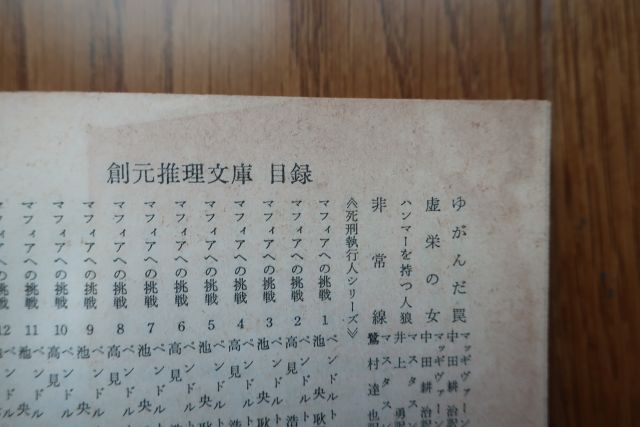 創元推理文庫 目録
ゆがんだ罠 マッギヴァーン 中田耕治訳
虚栄の女 マッギヴァーン 中田耕治訳
ハンマーを持つ人狼 マスタスン 井上勇訳
非常線 マスタスン 鷲村達也訳
《死刑執行人シリーズ》
マフィアへの挑戦 1 ペンドルト 池央耿
マフィアへの挑戦 2 ペンドルト 高見浩
マフィアへの挑戦 3 ペンドルト 池央
マフィアへの挑戦 4 ペンドルト 高見浩
マフィアへの挑戦 5 ペンドルト 池央
マフィアへの挑戦 6 ペンドル 高見浩
マフィアへの挑戦 7 ペンドル 池央
マフィアへの挑戦 8 ペンドル 高見
マフィアへの挑戦 9 ペンドル 池央
マフィアへの挑戦 10 ペンドル 高見
マフィアへの挑戦 11 ペンド 池
マフィアへの挑戦 12 ペンド